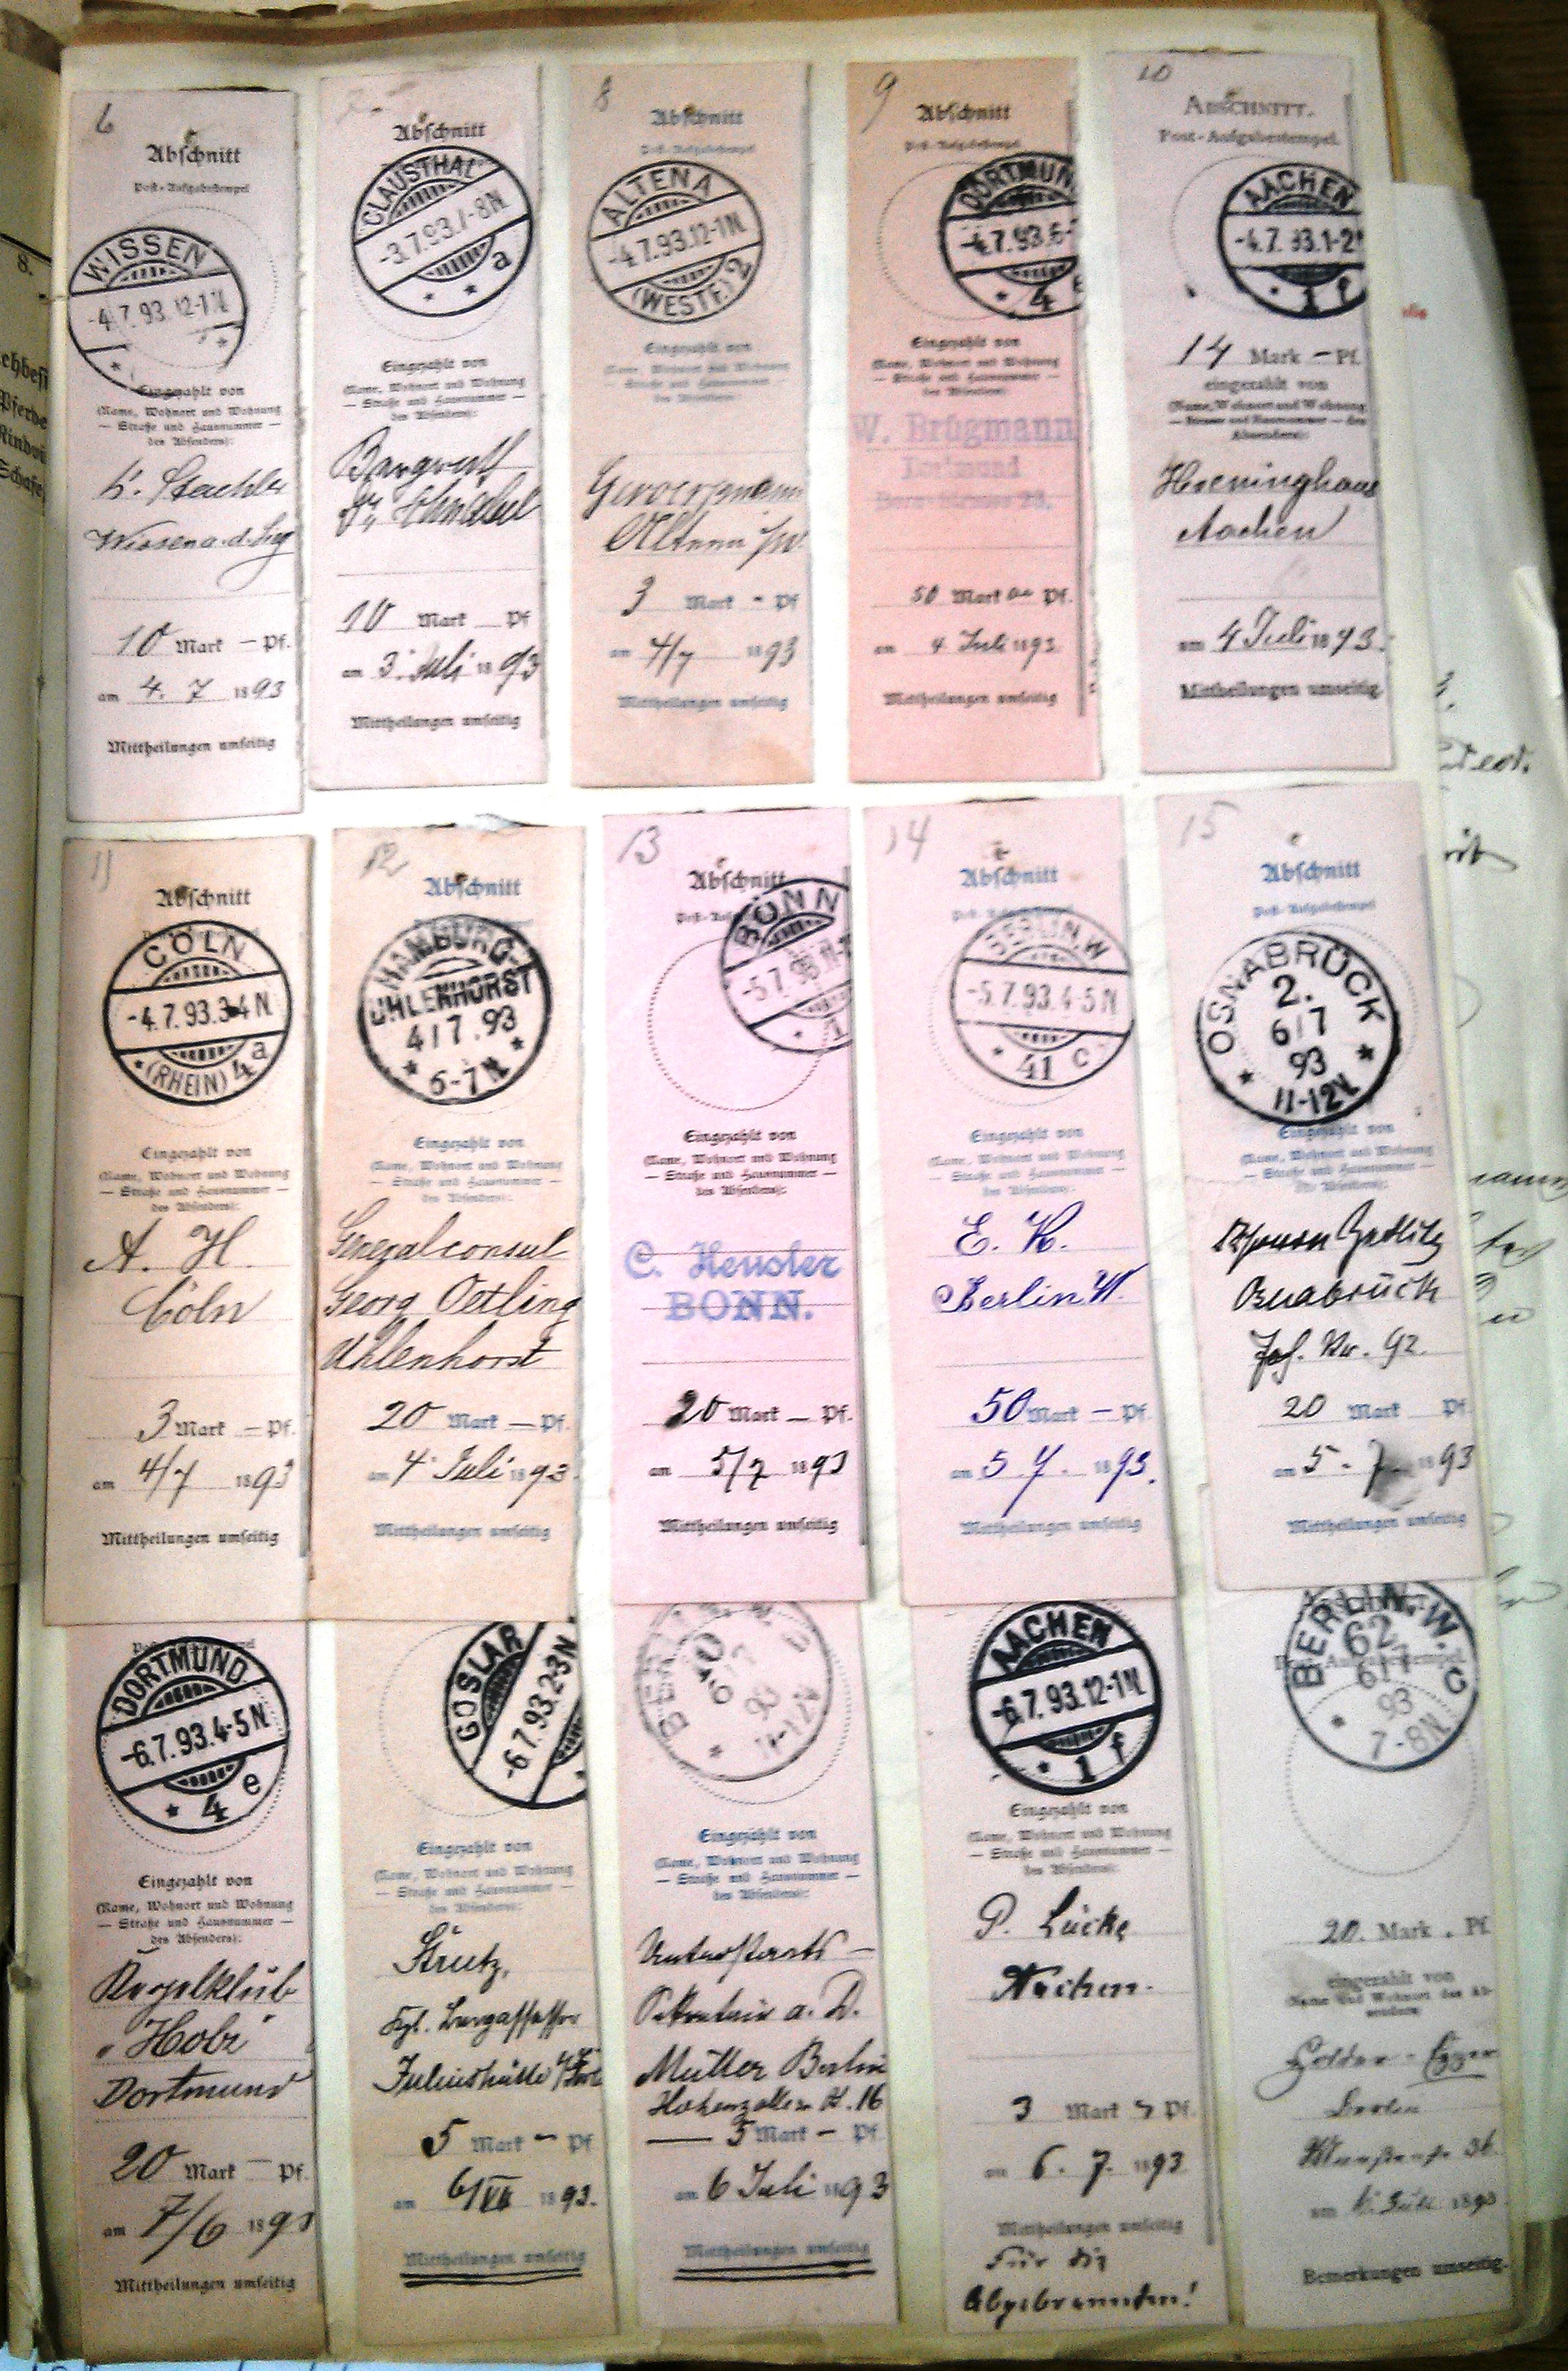 6
Abschnitt
Post-Aufgabestempel
WISSEN
-4.7.93.12-1N
Eingezahlt von
(Name, Wohnort und Wohnung
— Straße und Hausnummer —
des Absenders):
Wissen a. d. Sieg
10 Mark — Pf.
am 4. 7 1893
Mittheilungen umseitig
7
Abschnitt
CLAUSTHAL
-3.7.93.7-8N
a
Eingezahlt von
(Name, Wohnort und Wohnung
— Straße und Hausnummer —
des Absenders):
10 Mark Pf
am 3. Juli 1893
Mittheilungen umseitig
8
Abschnitt
Post-Aufgabestempel
ALTENA
-4.7.93.12-1N
(WESTF.) 2
Eingezahlt von
(Name, Wohnort und Wohnung
— Straße und Hausnummer —
des Absenders):
Altena i/W.
3 Mark - Pf
am 4/7 1893
Mittheilungen umseitig
9
Abschnitt
Post-Aufgabestempel
DORTMUN
-4.7.93.6-7
4
Eingezahlt von
(Name, Wohnort und Wohnung
— Straße und Hausnummer —
des Absenders):
W. Brügmann
Dortmund
50 Mark Pf.
am 4. Juli 1893.
Mittheilungen umseitig
10
ABSCHNITT.
Post-Aufgabestempel.
AACHEN
-4.7.93.1-2
1 f
14 Mark — Pf.
eingezahlt von
(Name, Wohnort und Wohnung
— Strasse und Hausnummer — des
Absenders):
Aachen
am 4 Juli 1893.
Mittheilungen umseitig.
11
Abschnitt
CÖLN
-4.7.93.3-4N
(RHEIN) 4 a
Eingezahlt von
(Name, Wohnort und Wohnung
— Straße und Hausnummer —
des Absenders):
A. H.
Cöln
3 Mark — Pf.
am 4/7 1893
Mittheilungen umseitig
12
Abschnitt
HAMBURG-
UHLENHORST
4/7.93
6-7N
Eingezahlt von
(Name, Wohnort und Wohnung
— Straße und Hausnummer —
des Absenders):
Generalconsul
Georg Oetling
Uhlenhorst
20 Mark — Pf.
am 4 Juli 1893.
Mittheilungen umseitig
13
Abschnitt
BONN
-5.7.93.11-
1
Eingezahlt von
(Name, Wohnort und Wohnung
— Straße und Hausnummer —
des Absenders):
C. Hensler
BONN.
20 Mark — Pf.
am 5/7 1893
Mittheilungen umseitig
14
Abschnitt
BERLIN.W
-5.7.93.4-5N
41 c
Eingezahlt von
(Name, Wohnort und Wohnung
— Straße und Hausnummer —
des Absenders):
E. K.
Berlin W.
50 Mark — Pf.
am 5 7. 1893.
Mittheilungen umseitig
15
Abschnitt
Post-Aufgabestempel
OSNABRÜCK
2.
6/7
93
11-12V
Eingezahlt von
(Name, Wohnort und Wohnung
— Straße und Hausnummer —
des Absenders):
Osnabrück
20 Mark Pf
am 5. 7. 1893
Mittheilungen umseitig
DORTMUND
-6.7.93.4-5N
4 e
Eingezahlt von
(Name, Wohnort und Wohnung
— Straße und Hausnummer —
des Absenders):
Kegelklub
Dortmund
20 Mark — Pf.
am 7/6 1893
Mittheilungen umseitig
GOSLAR
-6.7.93.2-3N
Eingezahlt von
(Name, Wohnort und Wohnung
— Straße und Hausnummer —
des Absenders):
Strutz,
Kgl. Bergassessor
Juliushütte
5 Mark — Pf
am 6/VII 1893.
Mittheilungen umseitig
93
Eingezahlt von
(Name, Wohnort und Wohnung
— Straße und Hausnummer —
des Absenders):
Sekretair a. D.
Müller Berlin
5 Mark — Pf.
am 6 Juli 1893
Mittheilungen umseitig
AACHEN
-6.7.93.12-1N
1 f
Eingezahlt von
(Name, Wohnort und Wohnung
— Straße und Hausnummer —
des Absenders):
P. Lücke
Aachen.
3 Mark Pf.
am 6. 7. 1893
Mittheilungen umseitig
Für die
Abgebrannten!
BERLIN,W.
62
6/7
93
7-8N
c
20. Mark . Pf.
eingezahlt von
Berlin
1893
Bemerkungen umseitig.